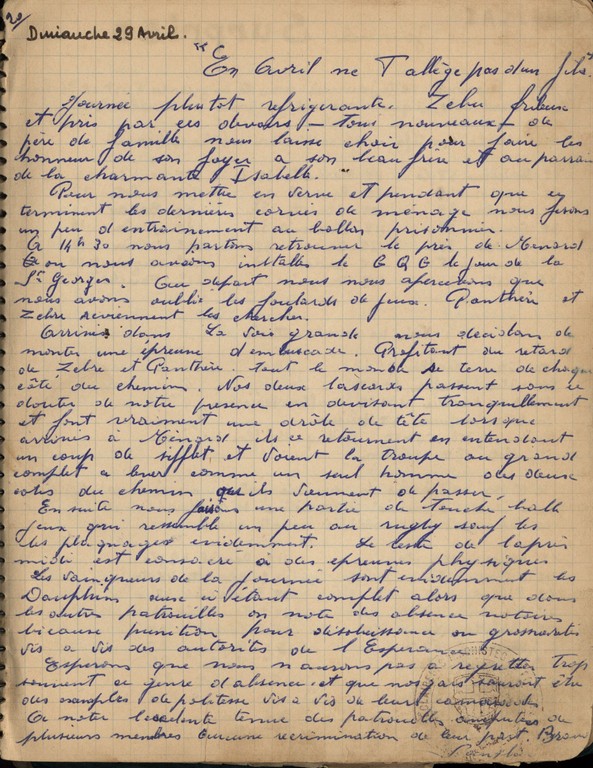 20/
Dimanche 29 Avril.
"En Avril ne T allège pas d'un fil."
Journée plutot refrigerante. Zebre frileux
et pris par ces devoirs - tous nouveaux - de
père de famille nous laisse choir pour faire les
honneur de son foyer a son beau frère et au parrain
de la charmante Isabelle.
Pour nous mettre en verve et pendant que ce
terminent les dernières corvées de ménage nous fesons
un peu d'entrainement au ballon prisonnier.
A 14h30 nous partons retrouver le près de Menard
ou nous avions installes le G Q G le jour de la
St Georges. Au départ nous nous apercevons que
nous avons oublié les foulards de jeux. Panthère et
Zebre reviennent les chercher.
Arrivés dans La Voie grande nous decidons de
monter une épreuve d'embuscade. Profitant du retard
de Zebre et Panthère. Tout le monde se terre de chaque
côté du chemin. Nos deux lascards passent sans ce
douter de notre presence en devisant tranquillement
et font vraiment une drôle de tête lorsque
arrivés à Ménard ils ce retournent en entendant
un coup de sifflet et voient la troupe au grand
complet a lever comme un seul homme des deux
cotés du chemin qu'ils viennent de passer.
En suite nous faisons une partie de touche balle
jeux qui ressemble un peu au rugby sauf les
les plaquages evidemment. Le reste de l'après
midi est consacré à des epreuves physiques
Les vainqueurs de la journée sont evidemment les
Dauphins ceux ci étant complet alors que dans
les autres patrouilles on note des absence notoires
bicause punition pour désobeissance ou grossiertés
vis a vis des autorités de l'Esperance
Esperons que nous n'aurons pas à regretter trop
souvent ce genre d'absence et que nos gars sauront être
des exemples de politesse vis a vis de leur camarades.
A noter l'excelente tenue des patrouilles amputées de
plusieurs membres aucune recrimination de leur part. Bravo